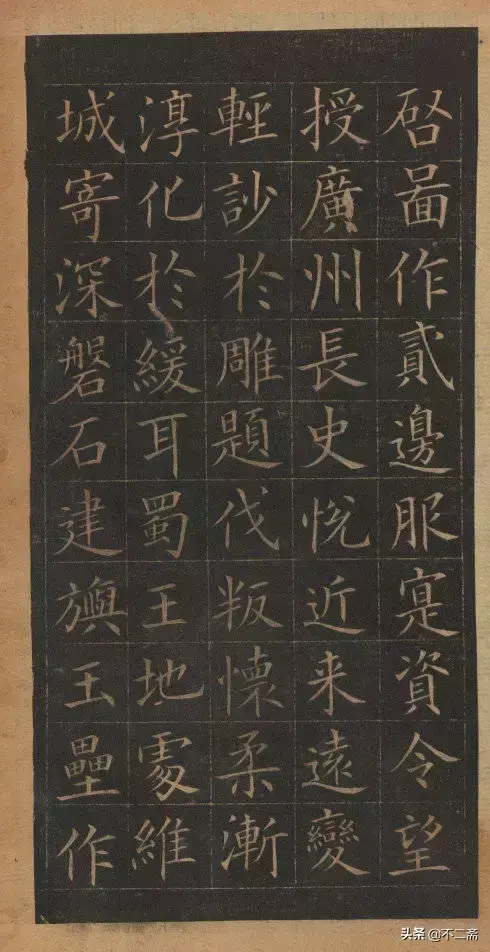 启啚作貳邊服寔資令望
授廣州長史恱近来遠變
輕訬於雕題伐叛懷柔漸
淳化於緩耳蜀王地處維
城寄深磐石建旟玉壘作
头条 @不二斋